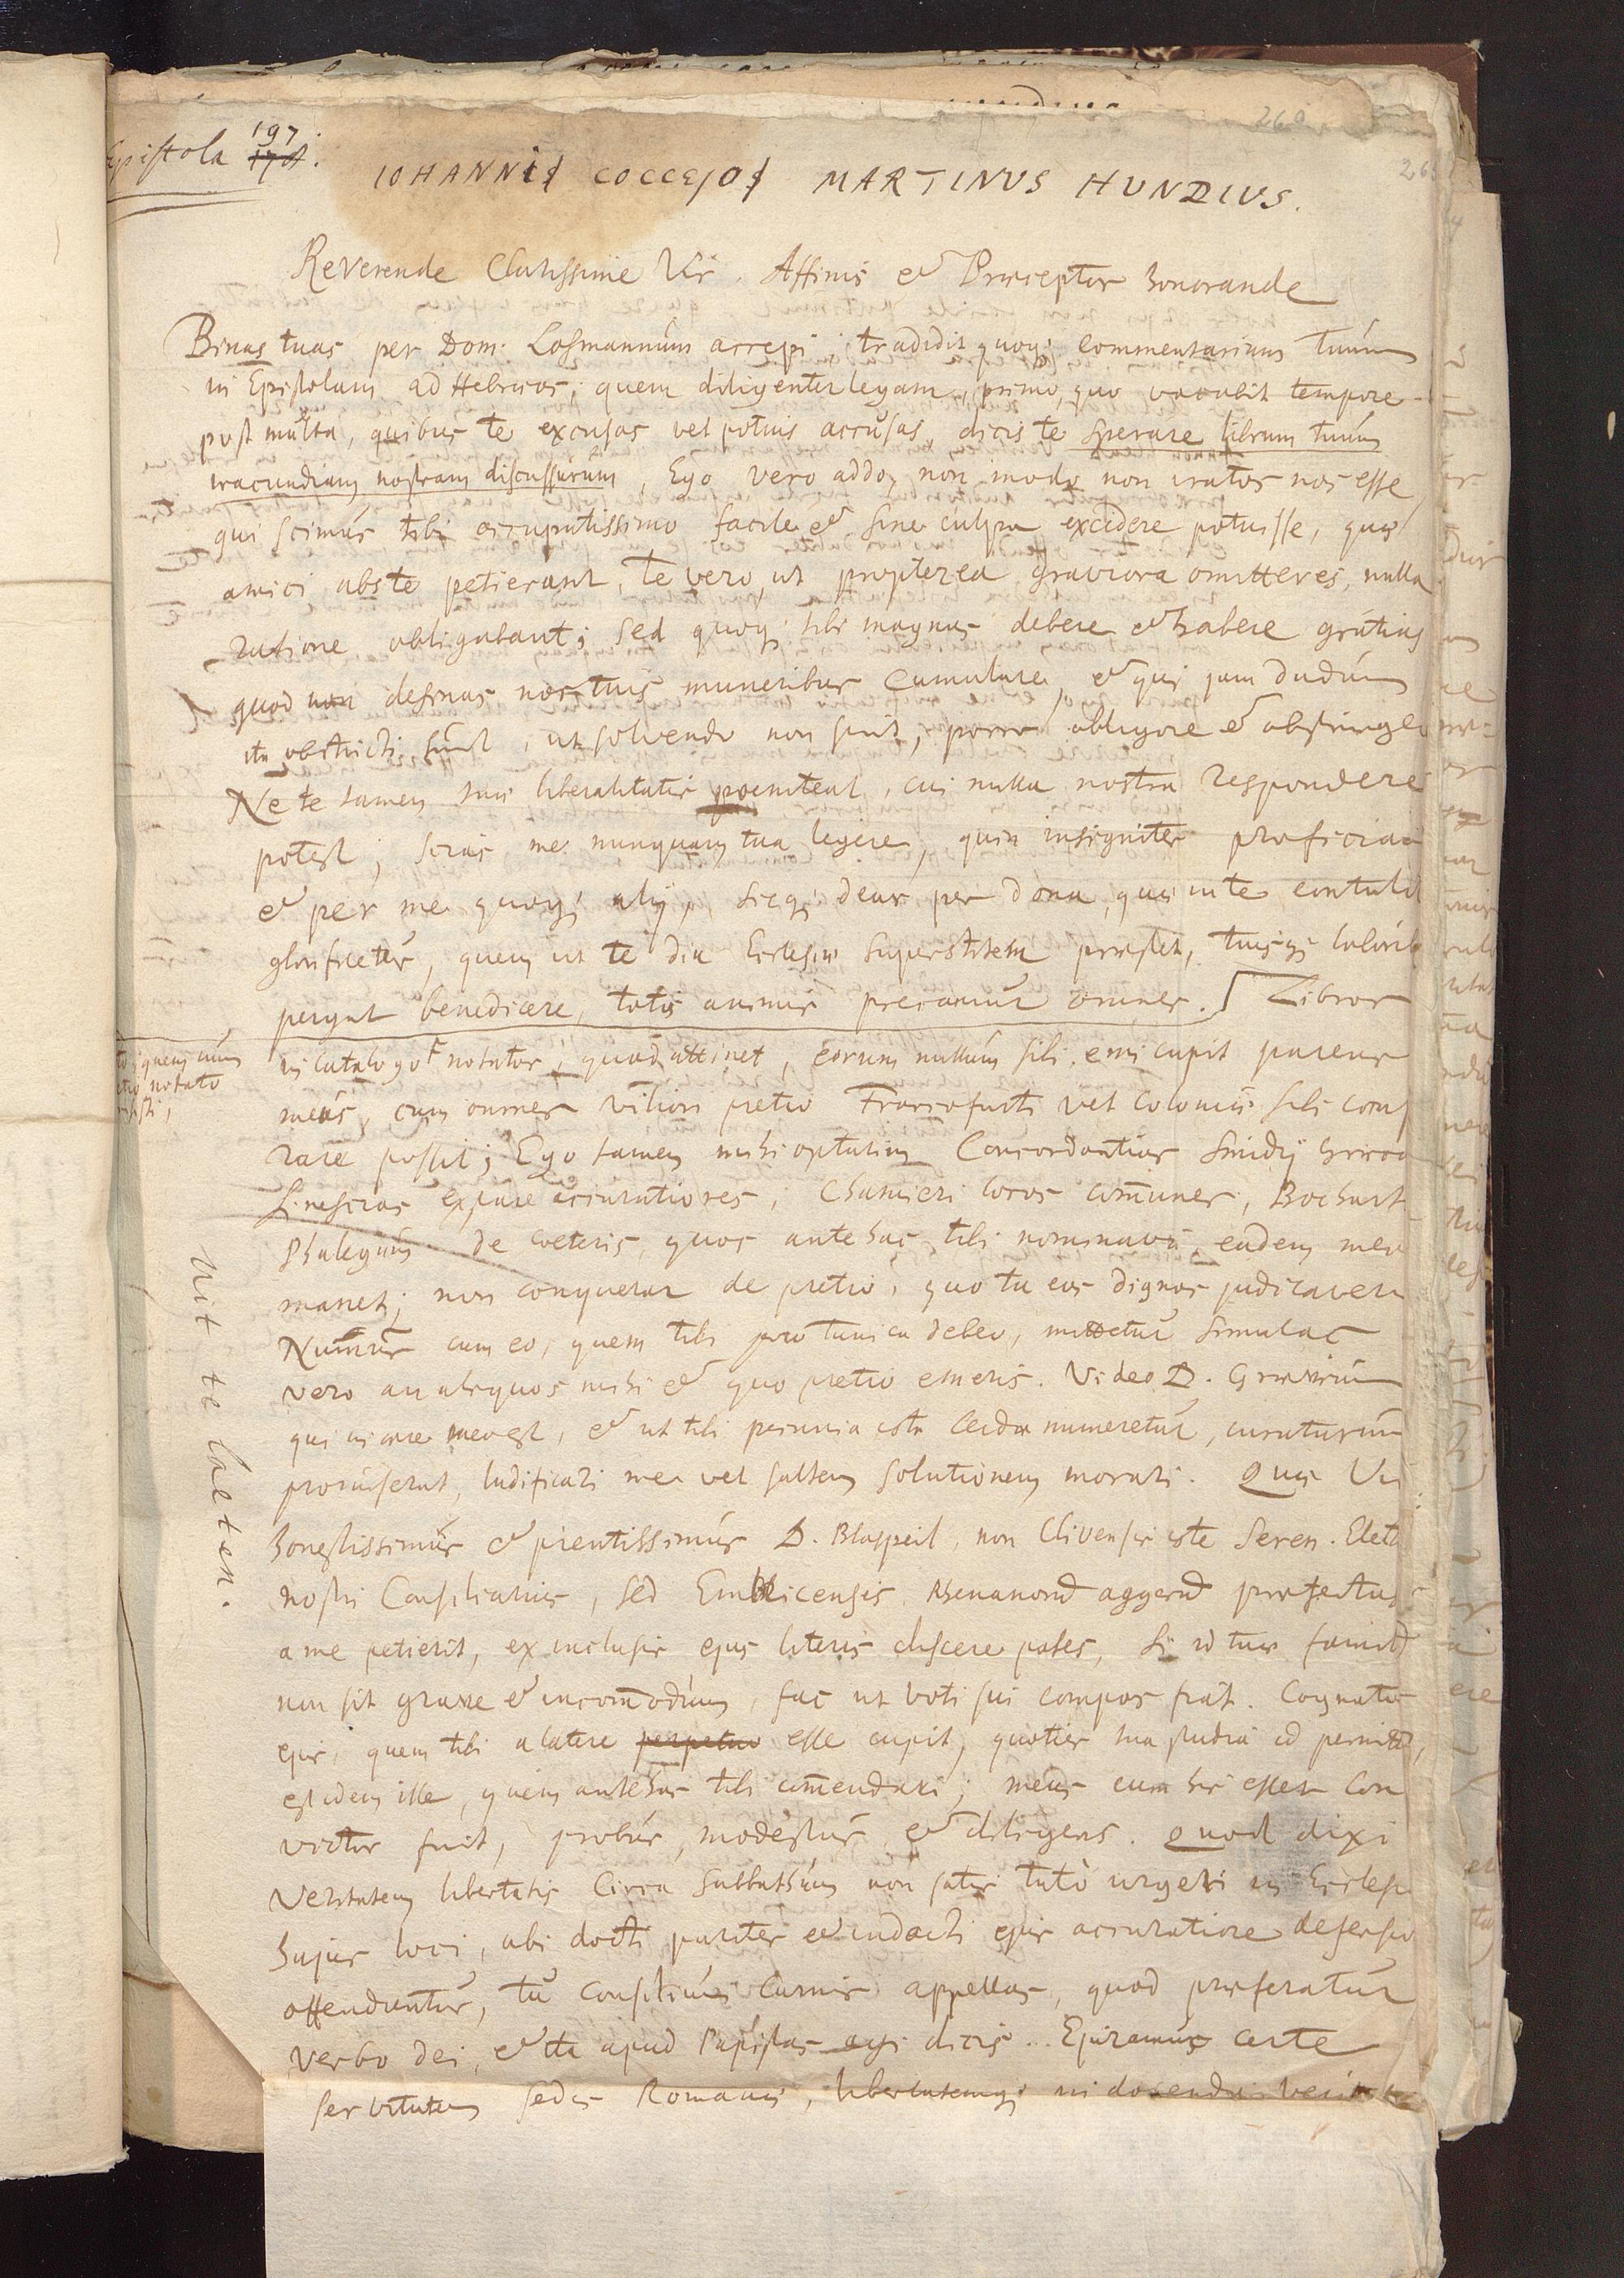 Epistola 197.
IOHANNI COCCEJO MARTINUS HUNDIUS.
260
Reverende Clarissime Vir. Affinis et Præceptor honorande
Binas tuas per Dom: Losmannum accepi; tradidit quoq; commentarium tuum
in Epistolam ad Hebræos; quem diligenter legam, primo, quo vacabit tempore.
post multa, quibus te excusas vel potius accusas, dicis te sperare librum tuum
iracundiam nostram discussurum, Ego vero addo, non modo non iratos nos esse
qui scimus tibi occupatissimo facile et sine culpa excidere potuisse, quæ
amici abs te petierant, te vero, ut propterea graviora omitteres, nulla
ratione obligabant; sed quoq; tibi magnas debere et habere gratias
quod non desinas nos tuis muneribus cumulare, et qui jam dudum
ita obstricti sunt, ut solvendo non sint, porro obligare et obstringe
Ne te tamen tuæ liberalitatis poeniteat, cui nulla nostra respondere
potest; scias me nunquam tua legere, quin insigniter proficiam
et per me quoq; alij, sicq; deus per dona, quæ in te contulit
glorificetur, quem ut te diu Ecclesiæ superstitem præstet, tuisq; laborib
pergat benedicere, totis animis precamur omnes. Libros
in Catalogo notatos, quod attinet, eorum nullum sibi emi cupit parens
meus, cum omnes viliori pretio Francofurti vel Coloniæ sibi comp
rare possit; Ego tamen mihi optarim Concordantias Smidij græca
si nescias extare accuratiores, Chamieri locos communes, Bochart
Phalegum. de coeteris, quos antehac tibi nominavi, eadem mea
manet; non conquerar de pretio, quo tu eos dignos judicaveri
Nummus cum eo, quem tibi pro tunica debeo, mittetur simulac
vero an aliquos mihi et quo pretio emeris. Video D. Grævium
qui in ære meo est, et ut tibi pecunia ista Leidæ numeretur, curaturum
promiserat, ludificari me vel saltem solutionem morari. Quæ Vir
honestissimus et prudentissimus D. Blaspeil, non Clivensis iste Seren. Elect
nostri Consiliarius, sed Embricensis Rhenanorum aggerum præfectus
a me petierit, ex inclusis ejus literis discere potes, si id tuæ famil
non sit grave et incommodum, fac ut voti sui compos fiat. Cognatus
ejus, quem tibi a latere perpetuo esse cupit, quoties tua studia id permitt,
est idem ille, quem antehac tibi commendavi; meus cum hic esset con
victor fuit, probus, modestus et diligens. Quod dixi
veritatem libertatis circa Sabbathum non satis tutò urgeri in Ecclesia
hujus loci, ubi docti pariter et indocti ejus accuratiore defensio
offenduntur, tu consilium carnis appellas, quod præferatur
verbo dei, et ita apud Papistas agi dicis. Ejuramus certe
servitutem sedis Romanæ, libertatemq; in docenda verit
quem num
notato
Uit te laeten.